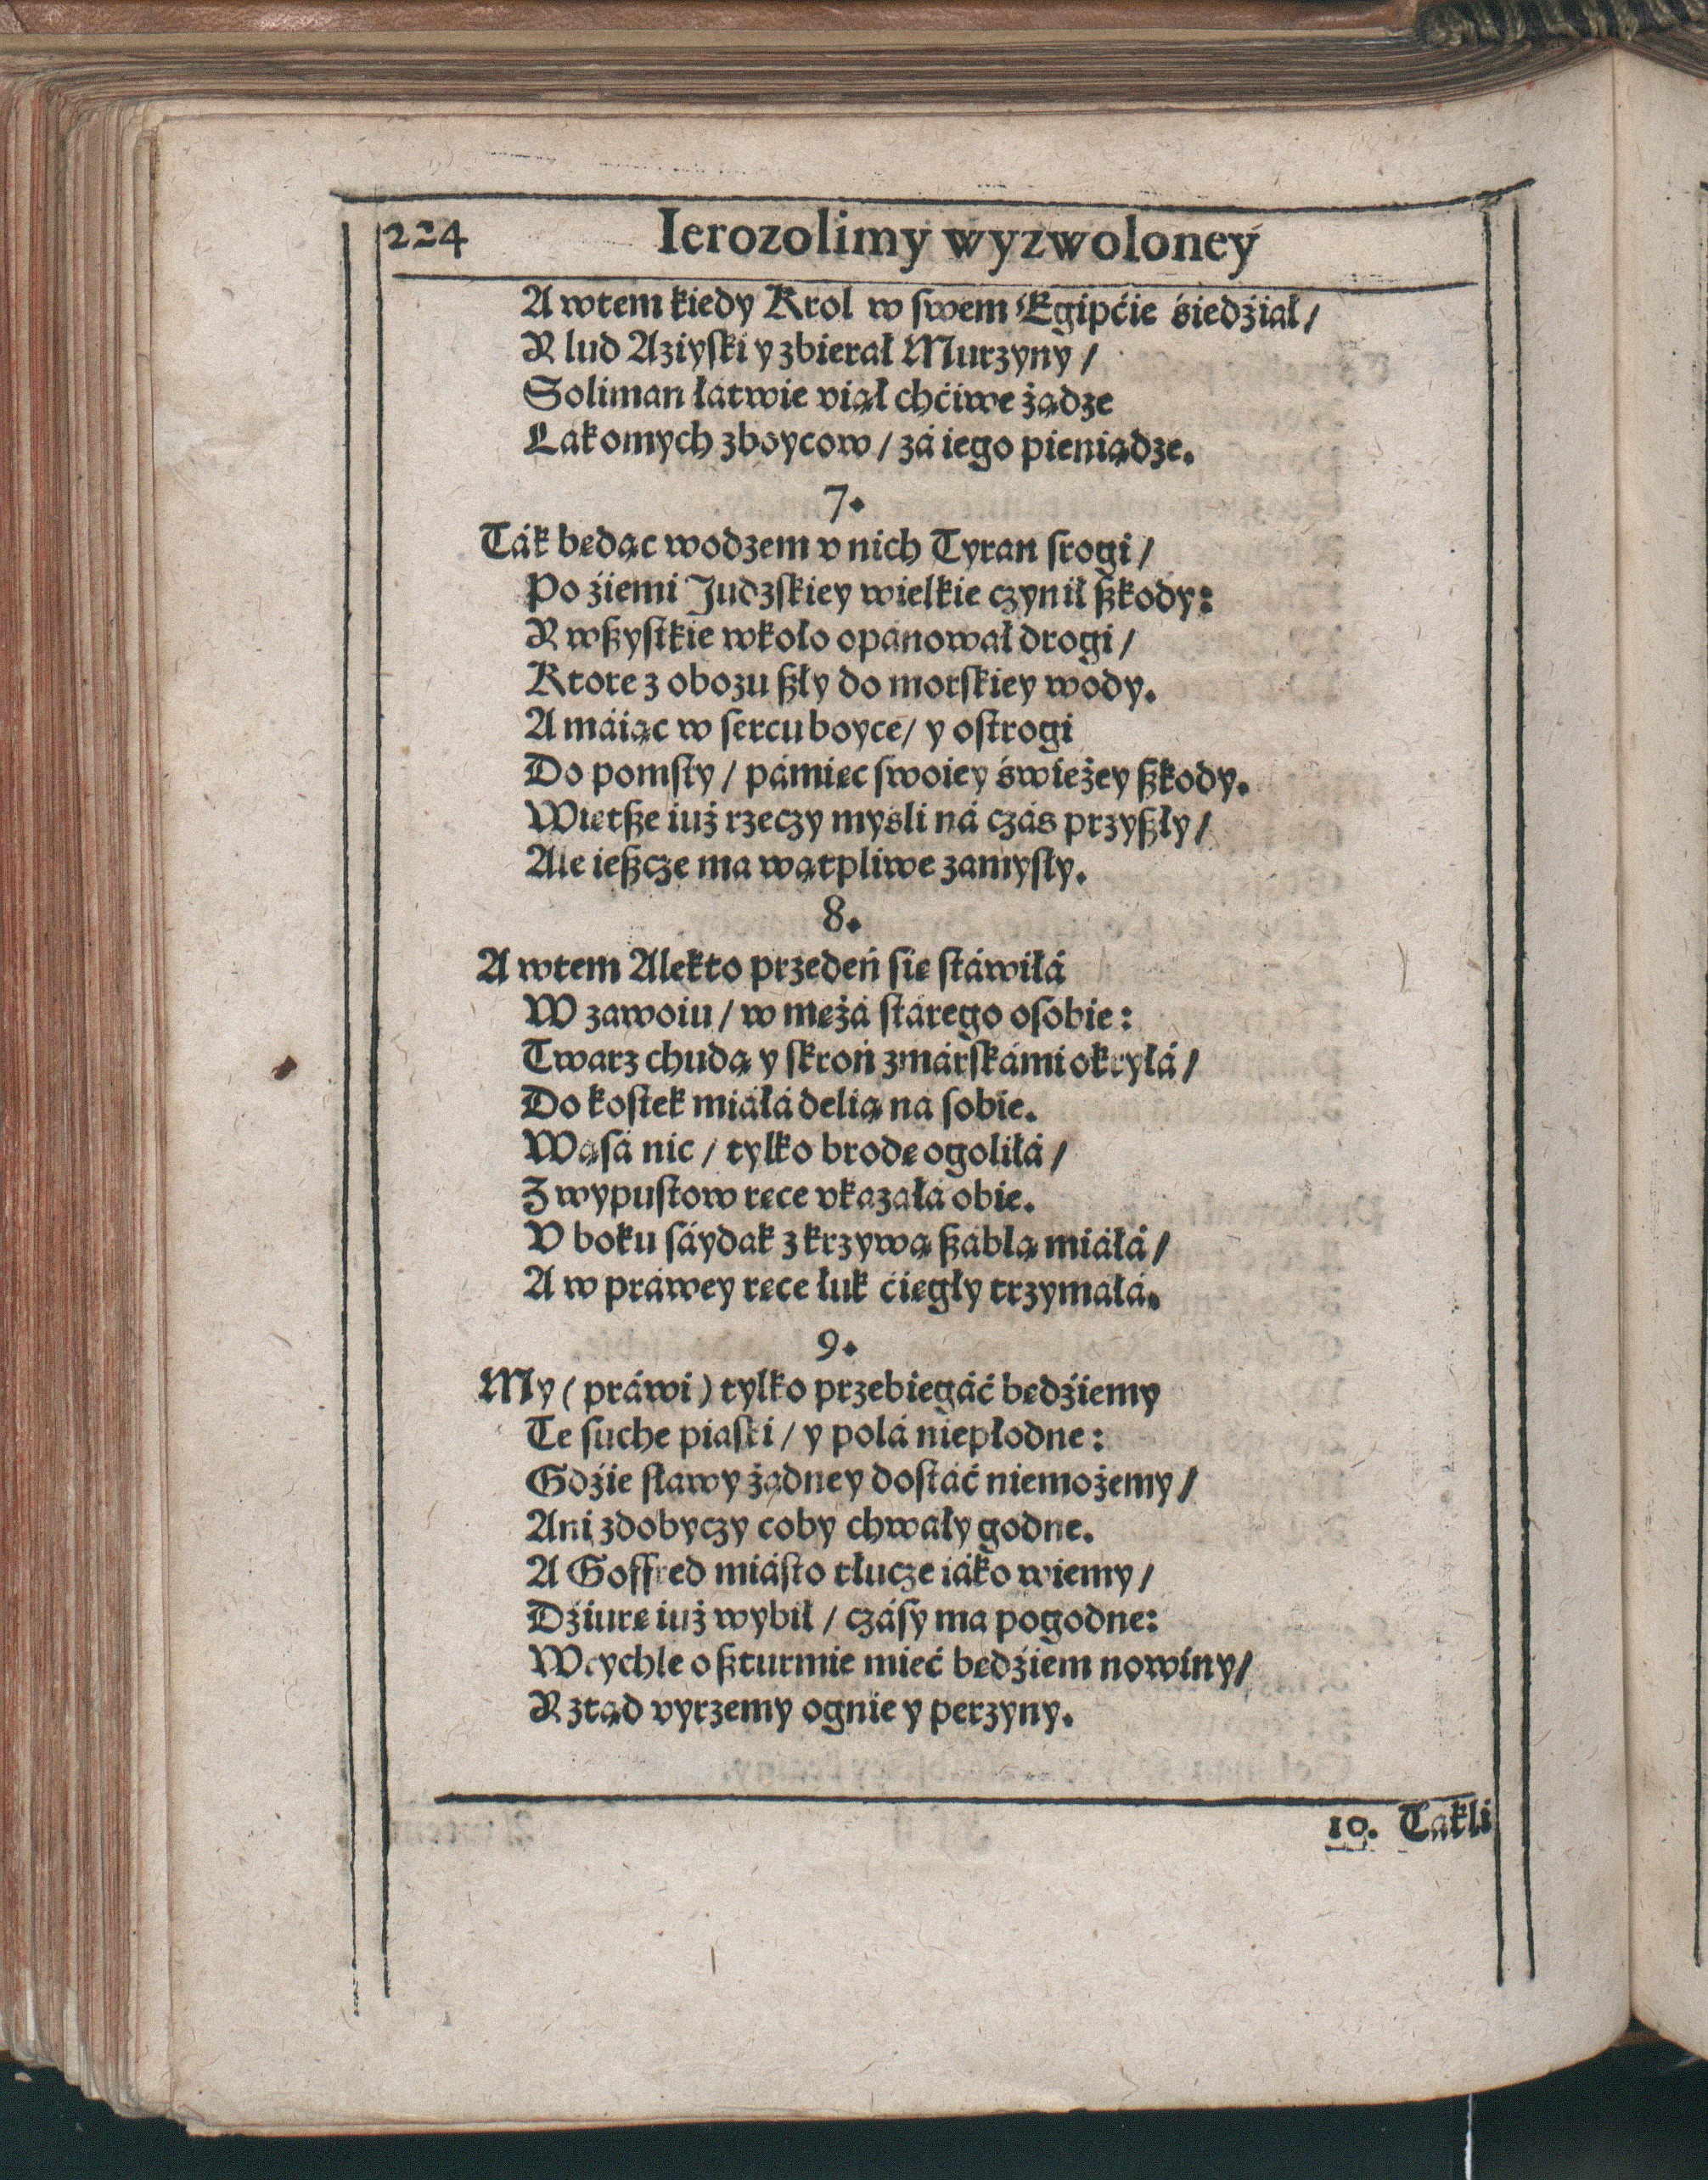 224 Ierozolimy wyzwoloney
A wtem kiedy Krol w swem Egipćie śiedźiał/
Y lud Aziyski y zbierał Murzyny/
Soliman łátwie viął chćiwe żądze
Łákomych zboycow/ zá iego pieniądze.
7.
Ták będąc wodzem v nich Tyran srogi/
Po źiemi Judzskiey wielkie czynił szkody:
Y wszystkie wkoło opánował drogi/
Ktore z obozu szły do morskiey wody.
A máiąc w sercu boyce/ y ostrogi
Do pomsty/ pámięc swoiey świeżey szkody.
Wietsze iuż rzeczy myśli ná czás przyszły/
Ale ieszcze ma wątpliwe zamysły.
8.
A wtem Alekto przedeń się stáwiłá
W zawoiu/ w mężá stárego osobie:
Twarz chudą y skroń zmárskámi okryłá/
Do kostek miáłá delią na sobie.
Wąsá nic/ tylko brodę ogoliłá/
Z wypustow ręce vkazáłá obie.
V boku sáydak z krzywą száblą miáłá/
A w práwey ręce łuk ćięgły trzymáłá.
9.
My (práwi) tylko przebiegáć będźiemy
Te suche piaski/ y polá niepłodne:
Gdźie sławy żadney dostáć niemożemy/
Ani zdobyczy coby chwały godne.
A Goffred miásto tłucze iáko wiemy/
Dźiurę iuż wybił/ czásy ma pogodne:
Wrychle o szturmie mieć będźiem nowiny/
Y ztąd vyrzemy ognie y perzyny.
10. Takli